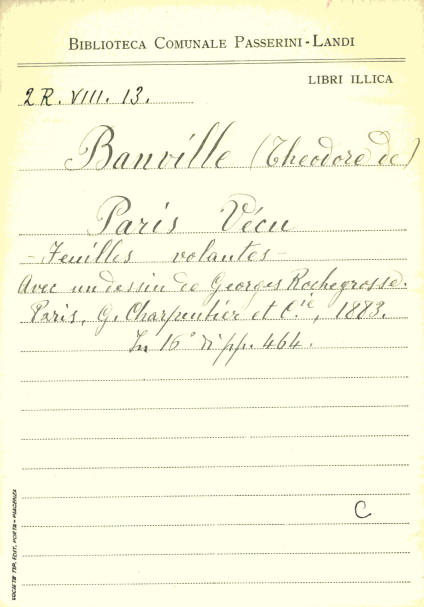 BIBLIOTECA COMUNALE PASSERINI-LANDI
LIBRI ILLICA
2 R. VIII. 13.
Banville (Théodore de)
Paris Vécu
- Feuilles volantes -
Avec un dessin de Georges Rochegrosse.
Paris, G. Charpentier et C.ie, 1883.
In 16° di pp. 464.
C
SOCIETÀ TIP. EDIT. PORTA - PIACENZA